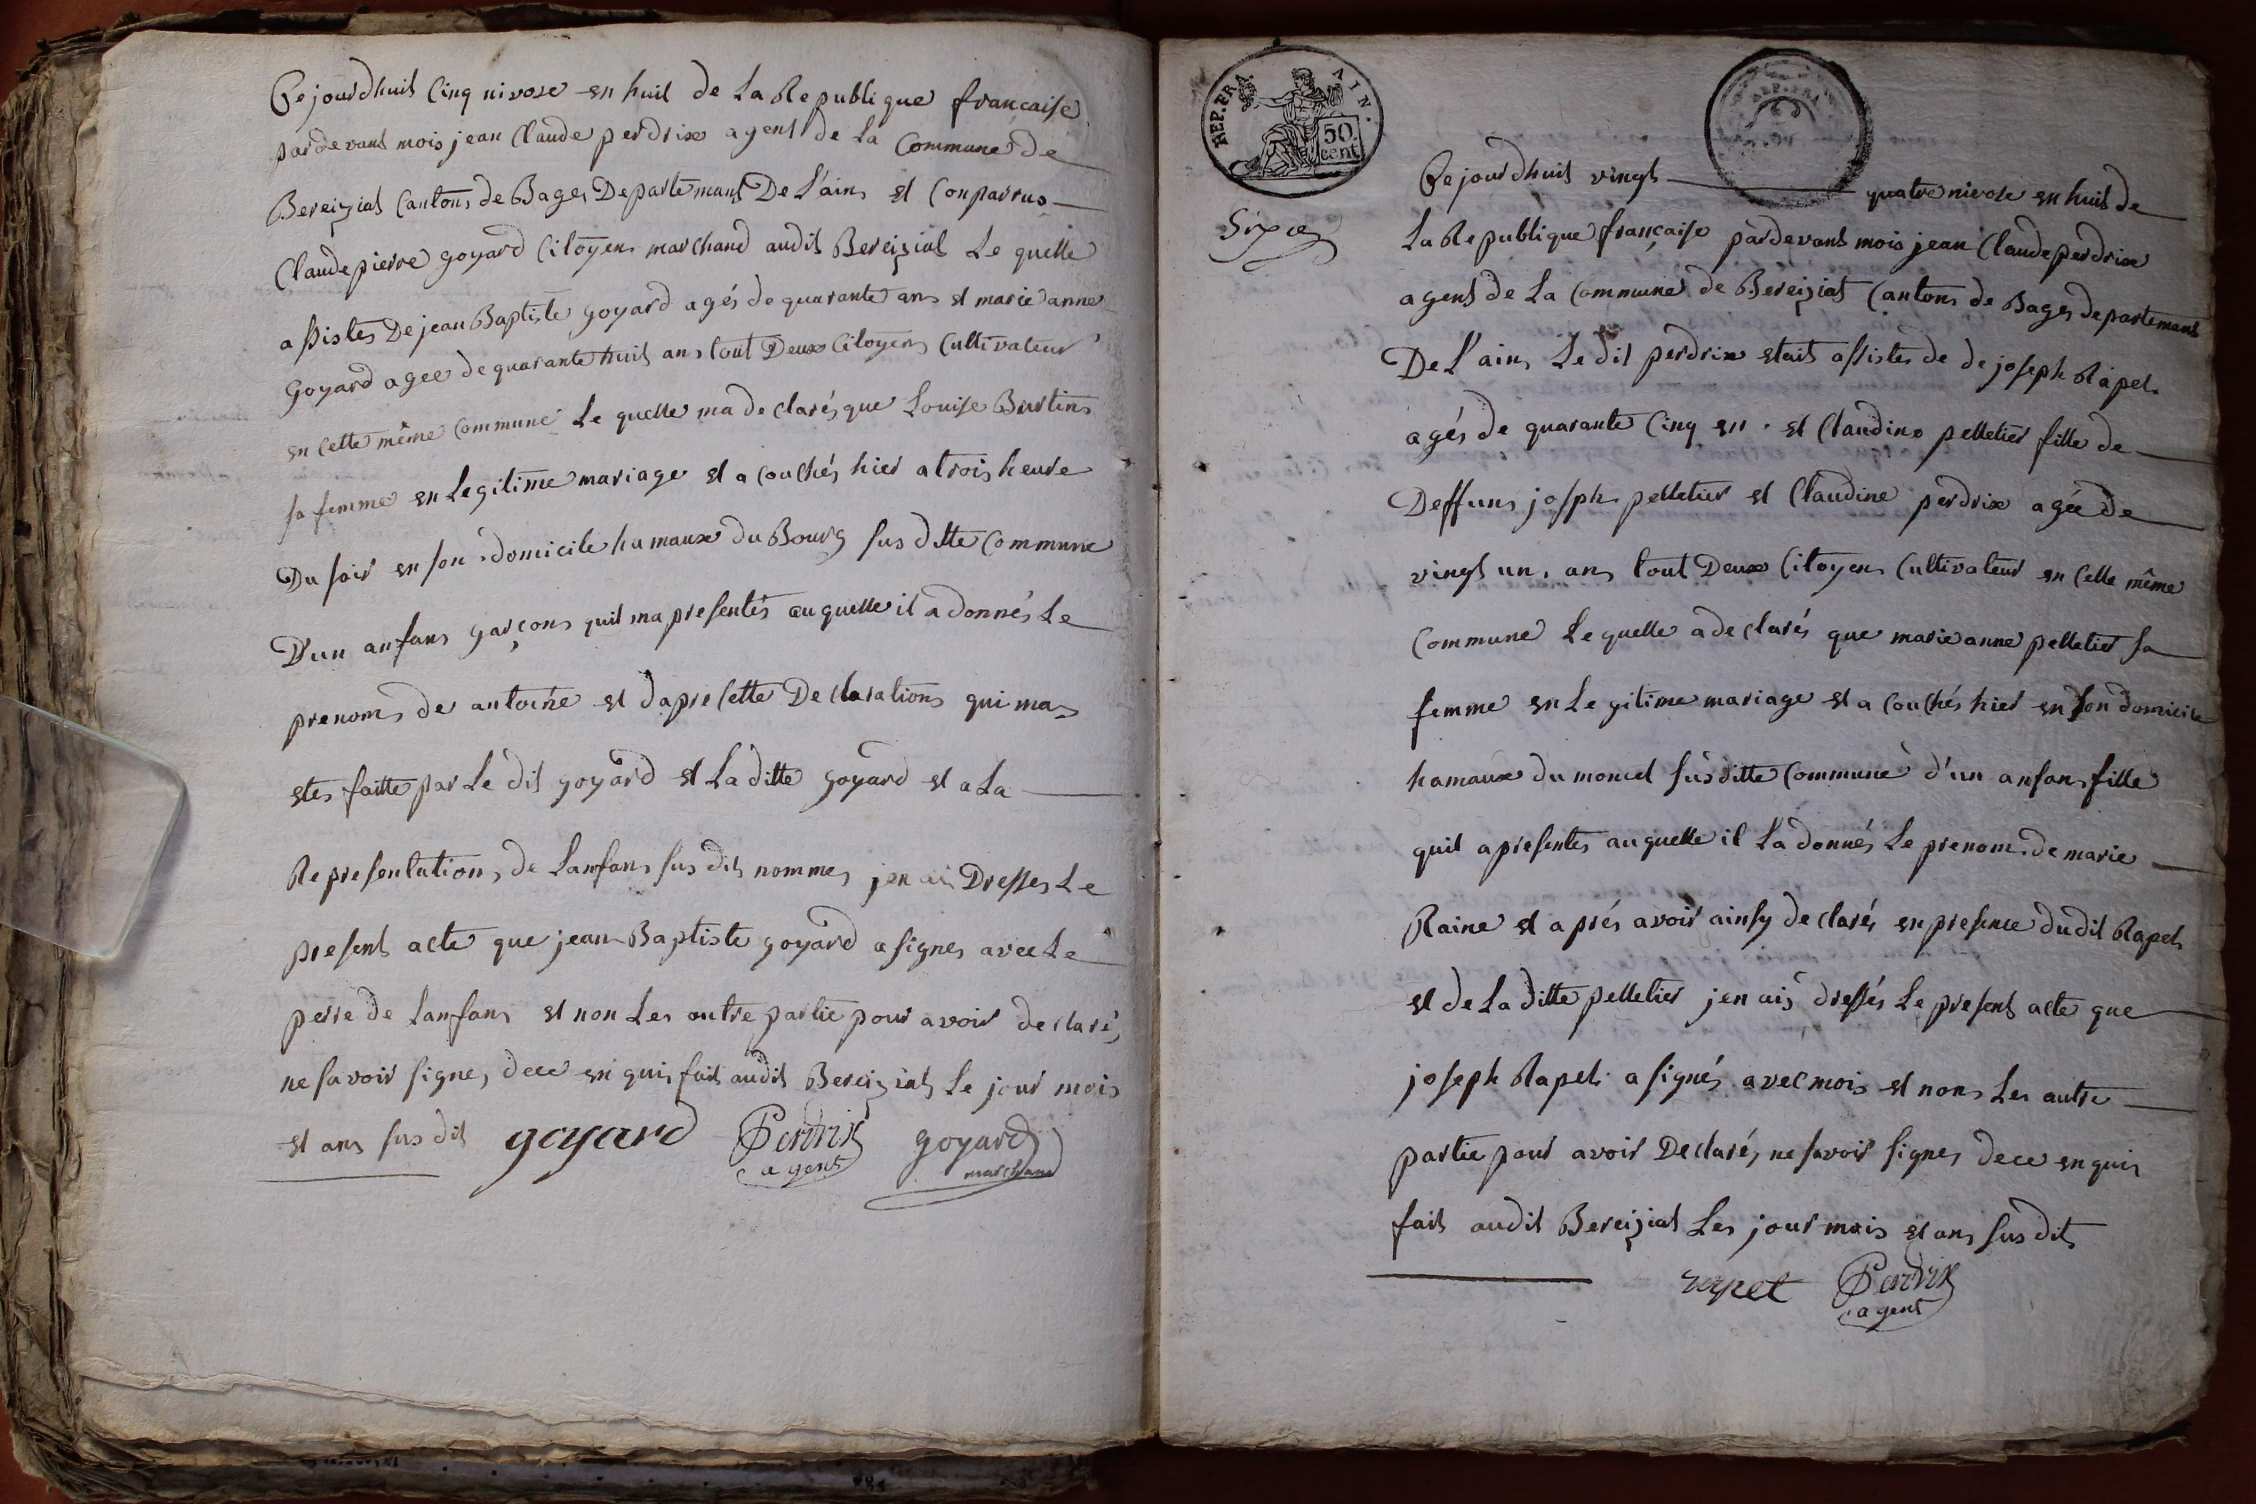 Cejourdhuit Cinq nivose en huit de La Republique francaise
pardevant mois jean Claude perdrix agent de La Commune de
Bereiziat Cantons de Bages Departemant De L'ain et Conparrus
Claude pierre goyard Citoyens marchand audit Bereiziat Le quelle
assistes De jean Baptiste goyard agés de quarante ans et marie anne
Goyard agee de quarante huit ans tout Deux Citoyens Cultivateur
en Cette même commune Le quelle ma declarés que Louise Burtins
sa femme en Legitime mariage et a couchés hier a trois heure
Du soir en son domicile hamaux du Bourg sus ditte Commune
D'un anfans garçons quil ma presentés auquelle il a donnés Le
prenoms de antoine et dapre Cette Declarations qui mas
etes faitte par Le dit goyard et La ditte goyard et a La
Representations de Lanfans sus dits nommes jen ais Dresses Le
present acte que jean Baptiste goyard a signes avec Le
perre de Lanfans et non Les autre partie pour avoir declarés
ne savoir signes dece en quis fait audit Bereiziats Le jour mois
et ans sus dit goyard Perdrix agent goyard marchand
REP. FRA. AIN.
50 cent
REP. FRA
Cejourdhuit vingt quatre nivose en huit de
La Republique française pardevant mois jean Claude perdrix
agent de La Commune de Bereiziat Cantons de Bages departemant
De L'ains Le dit perdrix etait assistes de de joseph Rapet
agés de quarante Cinq en et Claudine pelletier fille de
Deffuns josph pelletier et Claudine perdrix agée de
vingt un ans tout Deux Citoyens Cultivateur en Cette même
Commune Le quelle a declarés que marie anne pelletier sa
femme en Legitime mariage et a couchés hier en son domicile
hamaux du moncel sus ditte Commune d'un anfans fille
quil a presentes auquelle il La donnés Le prenom de marie
Raine et aprés avoir ainsy declarés en presence dudit Rapet
et de La ditte pelletier jen ais dressés Le present acte que
joseph Rapet a signés avec mois et nons Les autre
partie pour avoir Declarés ne savoir signes dece en quis
fait audit Bereiziat Les jour mois et ans sus dit
rapet Perdrix
agent